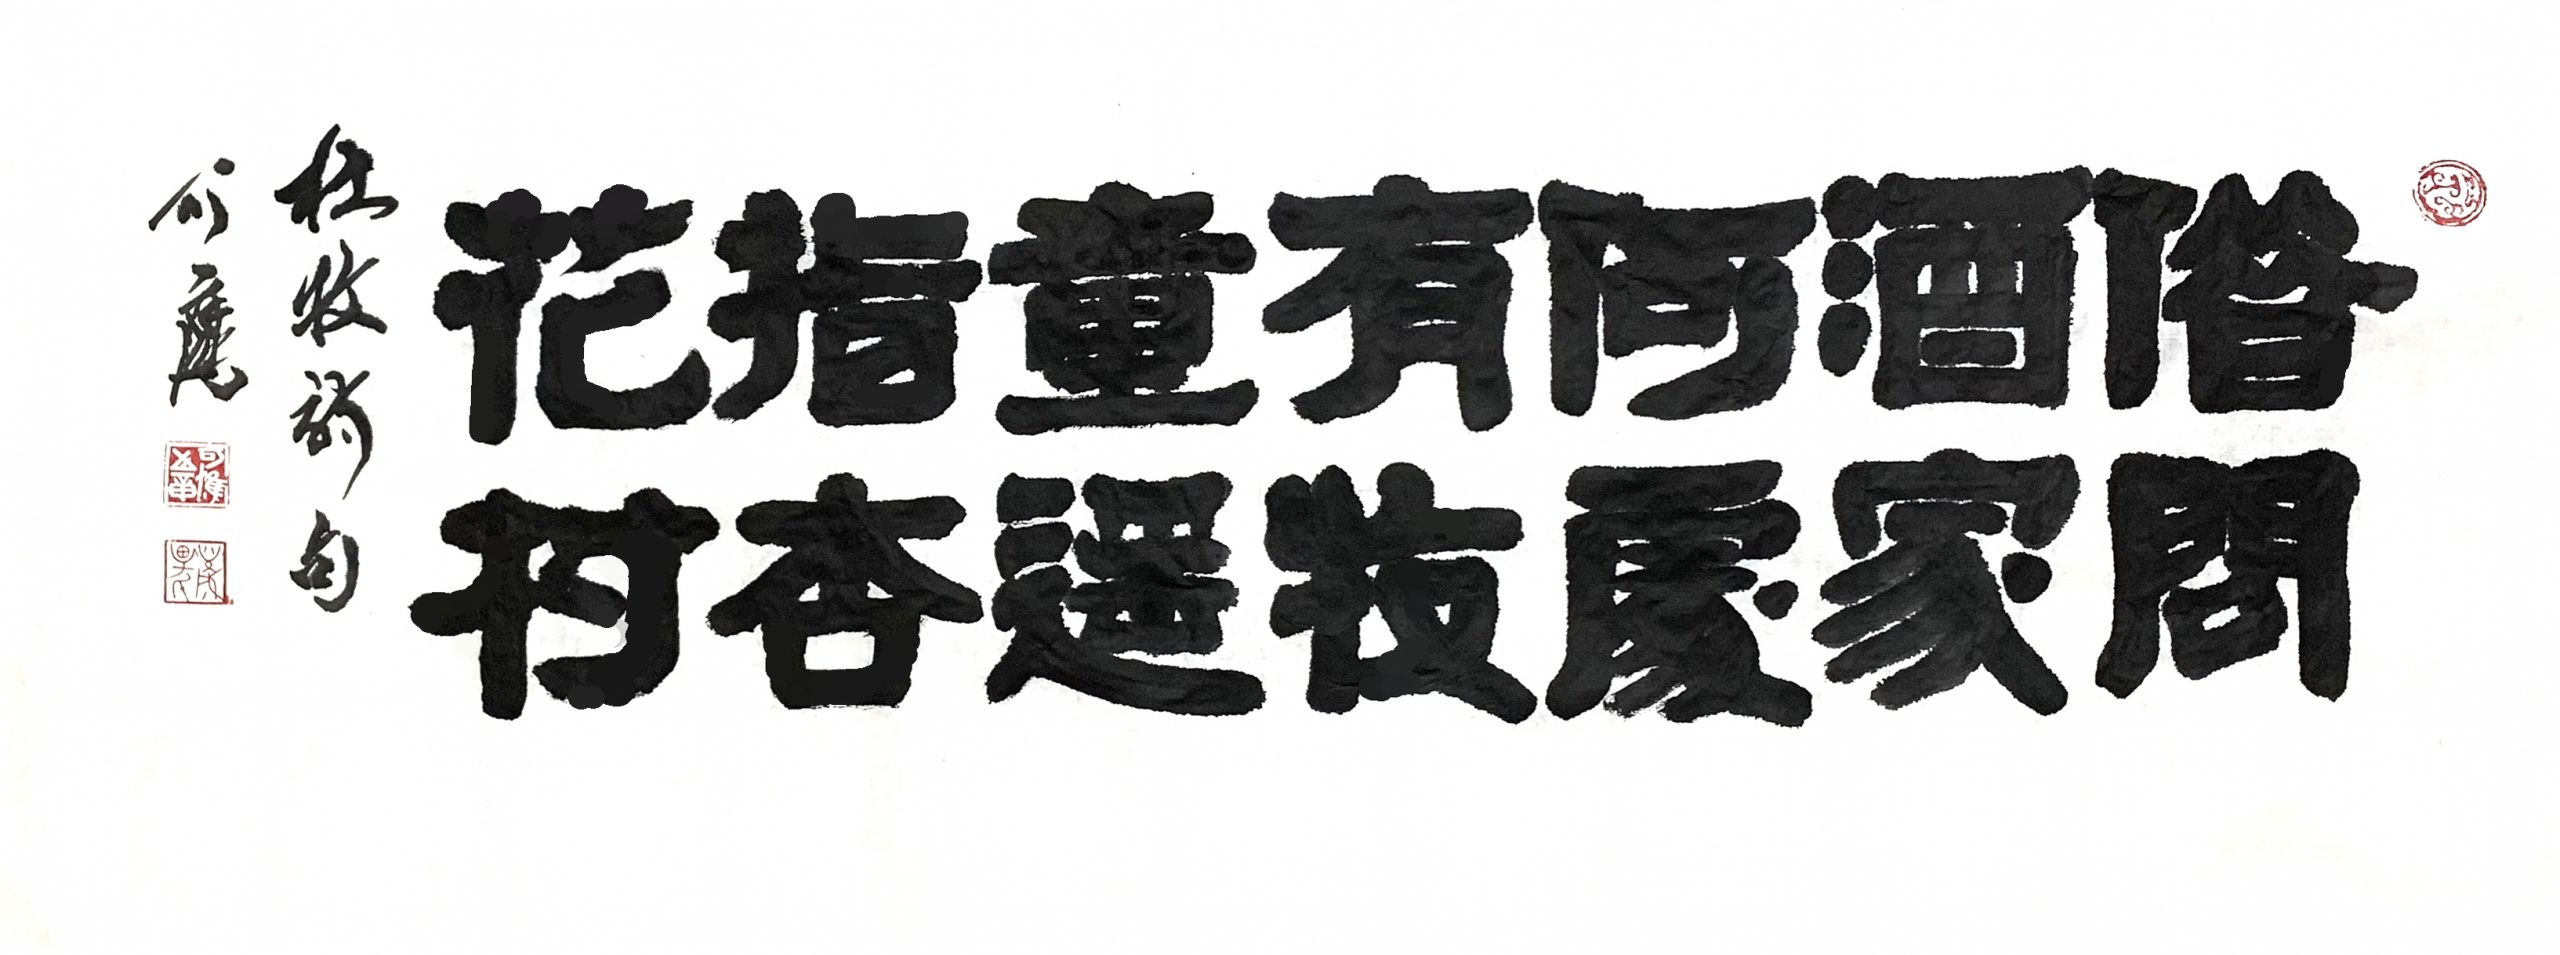 借問
酒家
何處
有牧
童遥
指杏
花村
杜牧詩句